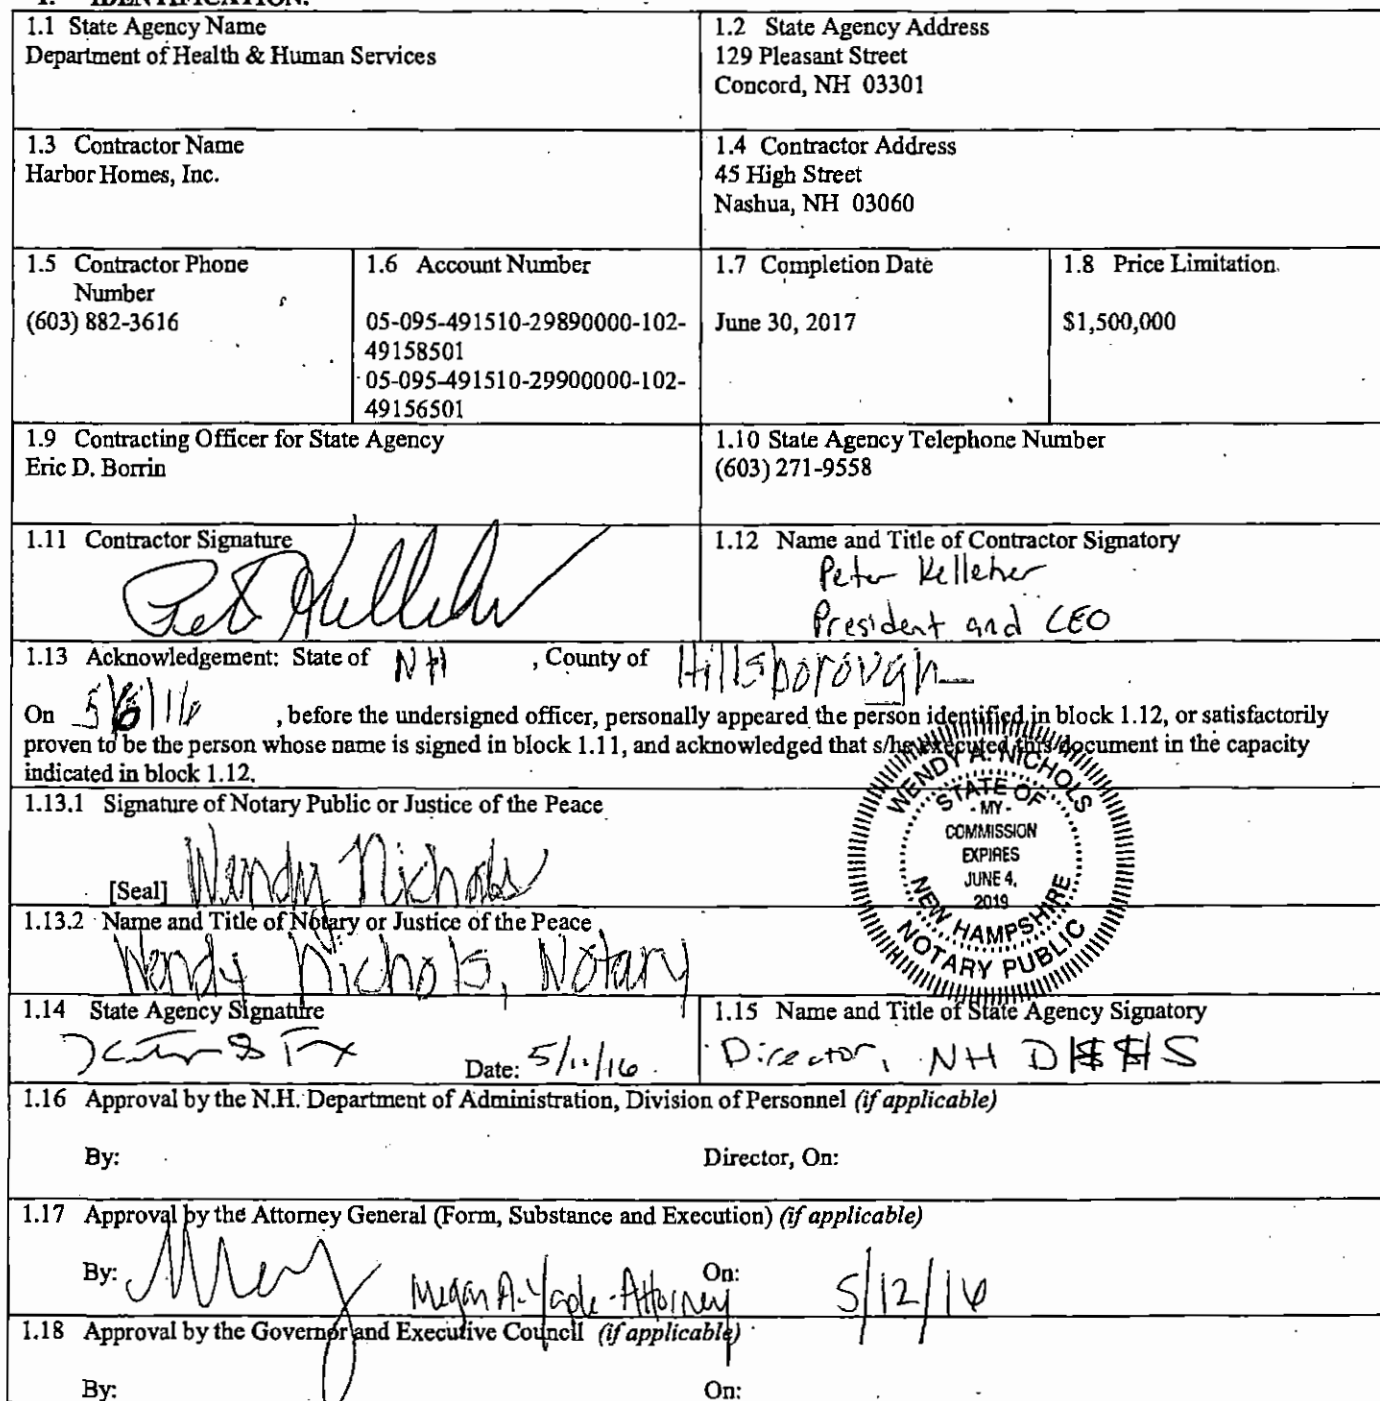 1. IDENTIFICATION.
1.1 State Agency Name
Department of Health & Human Services
1.2 State Agency Address
129 Pleasant Street
Concord, NH 03301
1.3 Contractor Name
Harbor Homes, Inc.
1.4 Contractor Address
45 High Street
Nashua, NH 03060
1.5 Contractor Phone
Number
(603) 882-3616
1.6 Account Number
05-095-491510-29890000-102-
49158501
05-095-491510-29900000-102-
49156501
1.7 Completion Date
June 30, 2017
1.8 Price Limitation
$1,500,000
1.9 Contracting Officer for State Agency
Eric D. Borrin
1.10 State Agency Telephone Number
(603) 271-9558
1.11 Contractor Signature
1.12 Name and Title of Contractor Signatory
Peter Kelleher
President and CEO
1.13 Acknowledgement: State of NH , County of Hillsborough
On 5/6/16 , before the undersigned officer, personally appeared the person identified in block 1.12, or satisfactorily
proven to be the person whose name is signed in block 1.11, and acknowledged that s/he executed this document in the capacity
indicated in block 1.12.
1.13.1 Signature of Notary Public or Justice of the Peace
[Seal] Wendy Nichols
WENDY A. NICHOLS
STATE OF
- MY -
COMMISSION
EXPIRES
JUNE 4,
2019
NEW HAMPSHIRE
NOTARY PUBLIC
1.13.2 Name and Title of Notary or Justice of the Peace
Wendy Nichols, Notary
1.14 State Agency Signature
Date: 5/11/16
1.15 Name and Title of State Agency Signatory
Director, NH DHHS
1.16 Approval by the N.H. Department of Administration, Division of Personnel (if applicable)
By: Director, On:
1.17 Approval by the Attorney General (Form, Substance and Execution) (if applicable)
By: Megan A. Yaple - Attorney On: 5/12/16
1.18 Approval by the Governor and Executive Council (if applicable)
By: On: